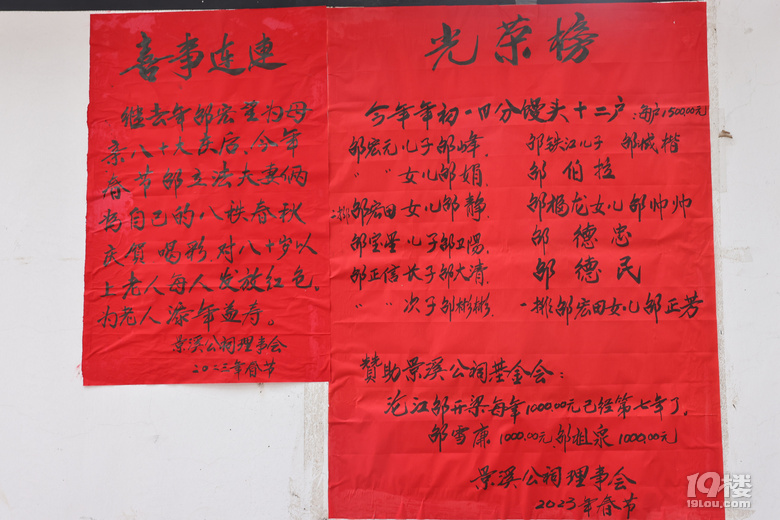 喜事连連
继去年邹宏星为母
亲八十大庆后,今年
春节邹立法夫妻俩
为自己的八秩春秋
庆贺喝彩对八十岁以
上老人每人发放红包,
为老人添年益寿。
景溪公祠理事会
2023年春节
光荣榜
今年年初一四分馒头十二户:每户1500.00元
邹宏元儿子邹峰. 邹铁江儿子 邹城楷
〃 〃 女儿邹娟. 邹伯拉
二挪邹宏田女儿邹静. 邹杨龙女儿邹帅帅
邹宝星儿子邹卫陽. 邹德忠
邹正信长子邹大清. 邹德民
〃 〃 次子邹彬彬. 一挪邹宏田女儿邹正芳
贊助景溪公祠基金会:
沦江邹开梁每年1000.00元已经第七年了,
邹雪康1000.00元.邹祖泉1000.00元
景溪公祠理事会
2023年春节
19楼
19lou.com